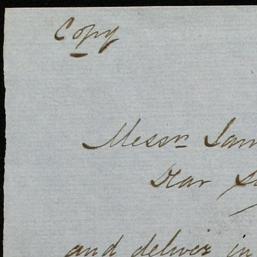 Copy
Messrs
Dear
and deliver in